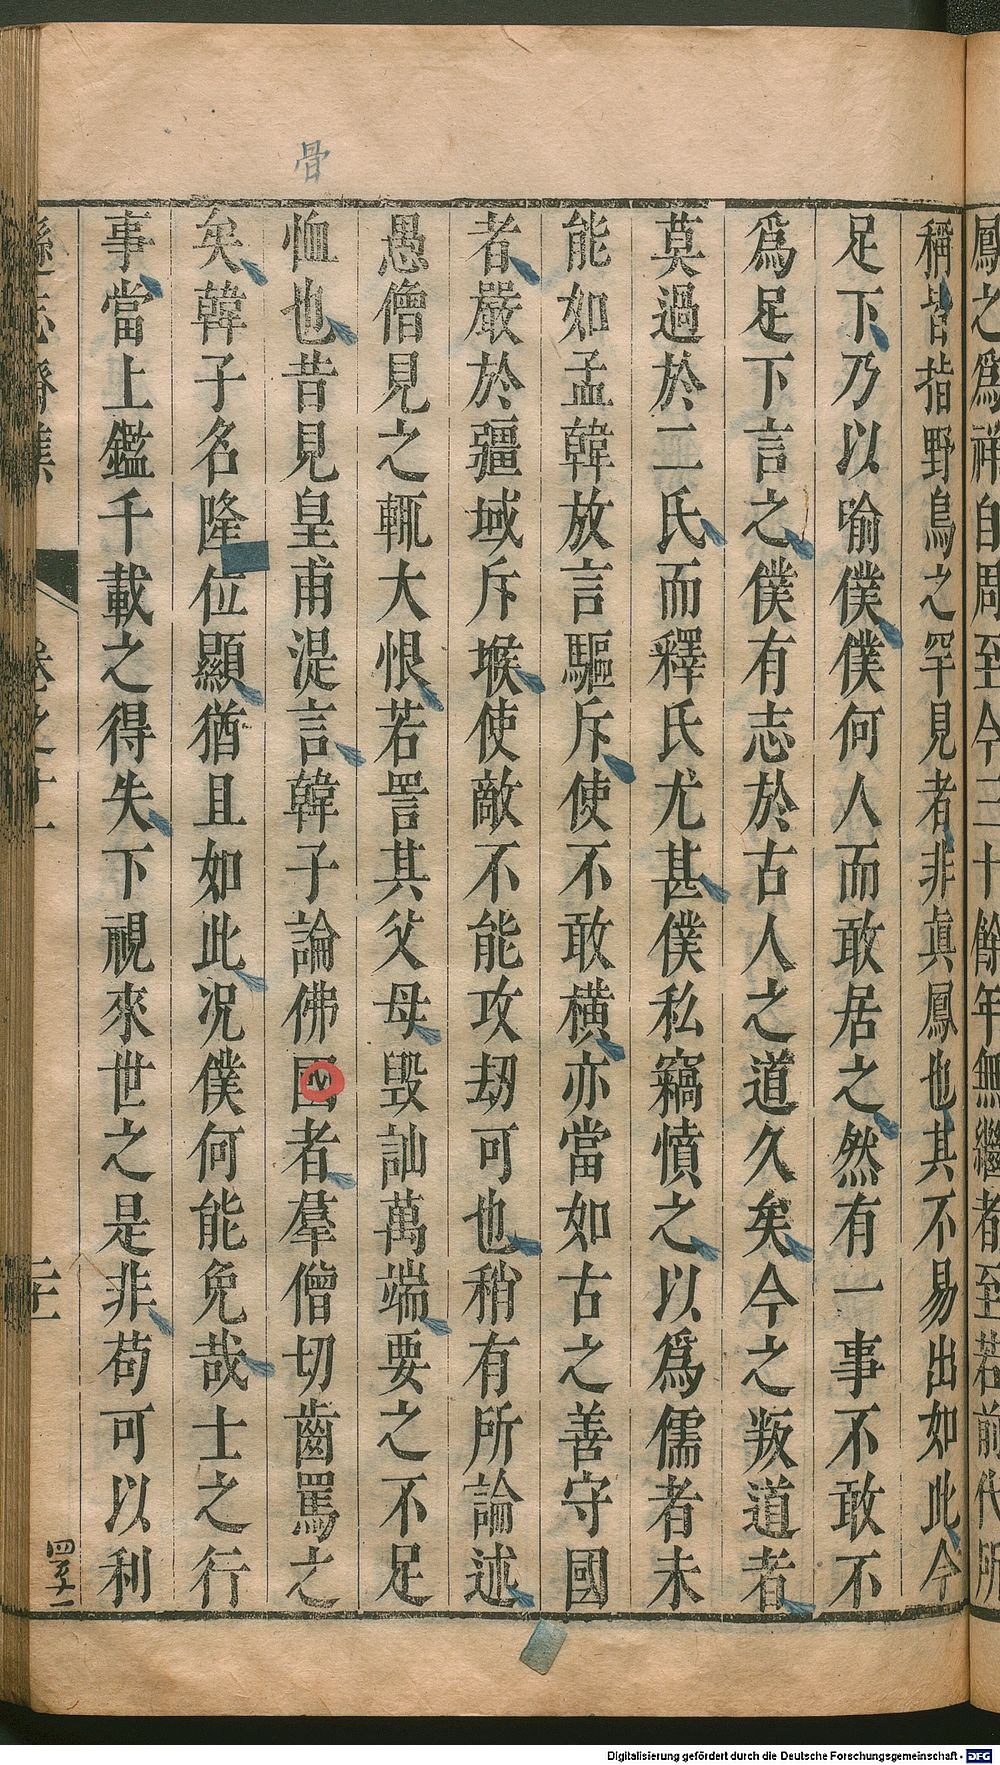 骨
鳳之爲祥自周至今三十餘年無繼者至若前代所
稱皆指野鳥之罕見者非眞鳳也其不易出如此今
足下乃以喻僕僕何人而敢居之然有一事不敢不
爲足下言之僕有志於古人之道久矣今之叛道者
莫過於二氏而釋氏尤甚僕私竊憤之以爲儒者未
能如孟韓放言驅斥使不敢橫亦當如古之善守國
者嚴於疆域斥堠使敵不能攻刼可也稍有所論述
愚僧見之輒大恨若詈其父母毁訕萬端要之不足
恤也昔見皇甫湜言韓子論佛國者羣僧切齒罵之
矣韓子名隆位顯猶且如此况僕何能免哉士之行
事當上鑑千載之得失下視來世之是非苟可以利
遜志齋集 卷之十一
Digitalisierung gefördert durch die Deutsche Forschungsgemeinschaft - DFG